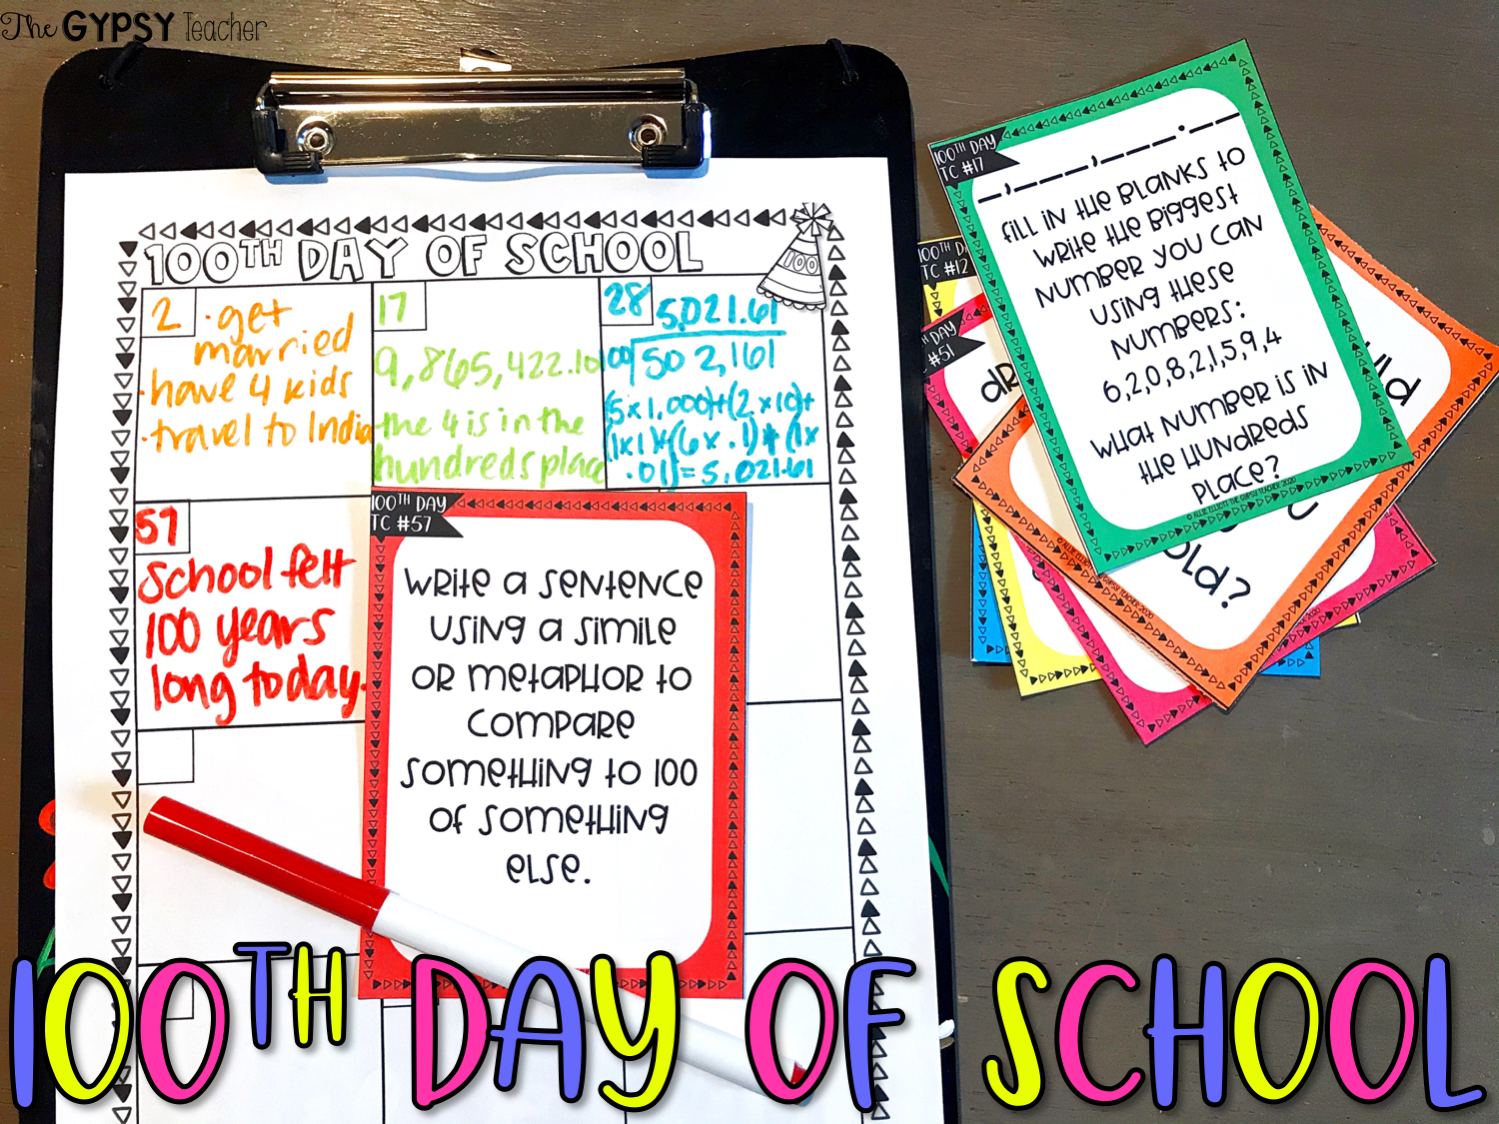 The GYPSY Teacher
100TH DAY OF SCHOOL
100
2
· get
married
· have 4 kids
· travel to India
17
9,865,422.10
the 4 is in the
hundreds place
28
5,021.61
502,161
(5x1,000)+(2x10)+
(1x1)+(6x.1)+(1x
.01)=5,021.61
57
School felt
100 years
long today.
100TH DAY
TC #57
Write a sentence
using a simile
or metaphor to
compare
something to 100
of something
else.
100TH DAY
TC #17
_,___,___.__
Fill in the blanks to
write the biggest
number you can
using these
numbers:
6,2,0,8,2,1,5,9,4
What number is in
the hundreds
place?
© ALLIE ELLIOTT, THE GYPSY TEACHER 2020
100TH D
TC #12
DAY
#51
old?
100TH DAY OF SCHOOL